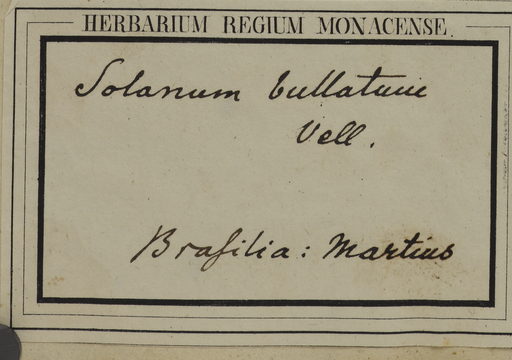 HERBARIUM REGIUM MONACENSE.
Solanum bullatum
Vell.
Braſilia: Martius